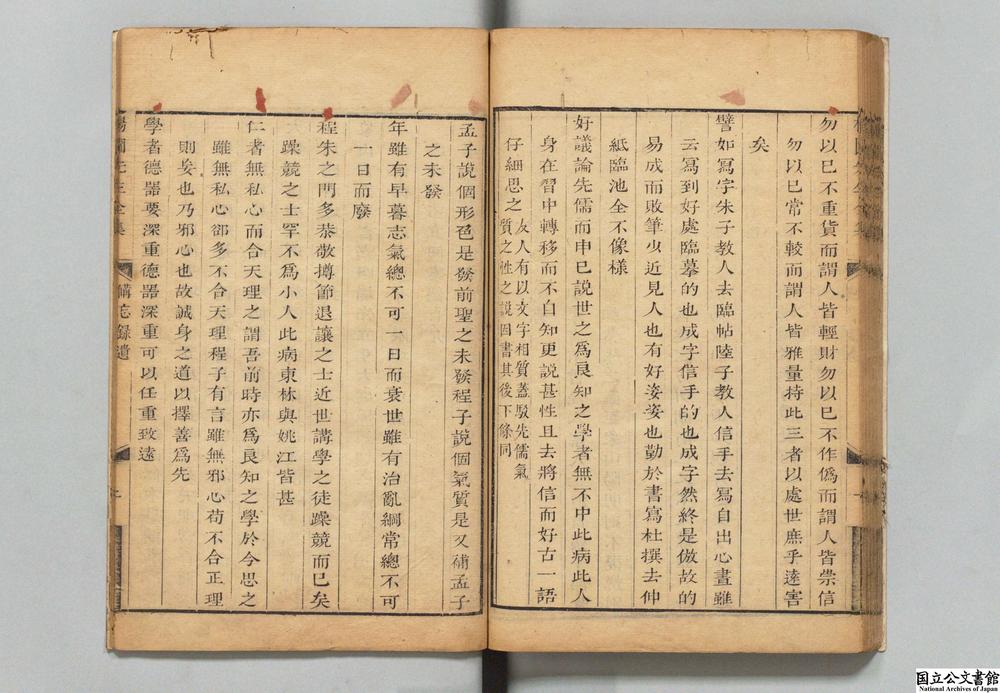 勿以己不重貨而謂人皆輕財勿以己不作僞而謂人皆崇信
勿以己常不較而謂人皆雅量持此三者以處世庶乎遠害
矣
譬如寫字朱子教人去臨帖陸子教人信手去寫自出心畫雖
云寫到好處臨摹的也成字信手的也成字然終是倣故的
易成而敗筆少近見人也有好姿姿也勤於書寫杜撰去伸
紙臨池全不像樣
好議論先儒而申己說世之爲良知之學者無不中此病此人
身在習中轉移而不自知更説甚性且去將信而好古一語
仔細思之友人有以文字相質蓋駁先儒氣
質之性之説因書其後下條同
孟子說個形色是發前聖之未發程子說個氣質是又補孟子
之未發
年雖有早暮志氣總不可一日而衰世雖有治亂綱常總不可
一日而廢
程朱之門多恭敬撙節退讓之士近世講學之徒躁競而已矣
躁競之士罕不爲小人此病東林與姚江皆甚
仁者無私心而合天理之謂吾前時亦爲良知之學於今思之
雖無私心郤多不合天理程子有言雖無邪心苟不合正理
則妄也乃邪心也故誠身之道以擇善爲先
學者德器要深重德器深重可以任重致遠
楊園先生全集
備忘錄遺
国立公文書館
National Archives of Japan